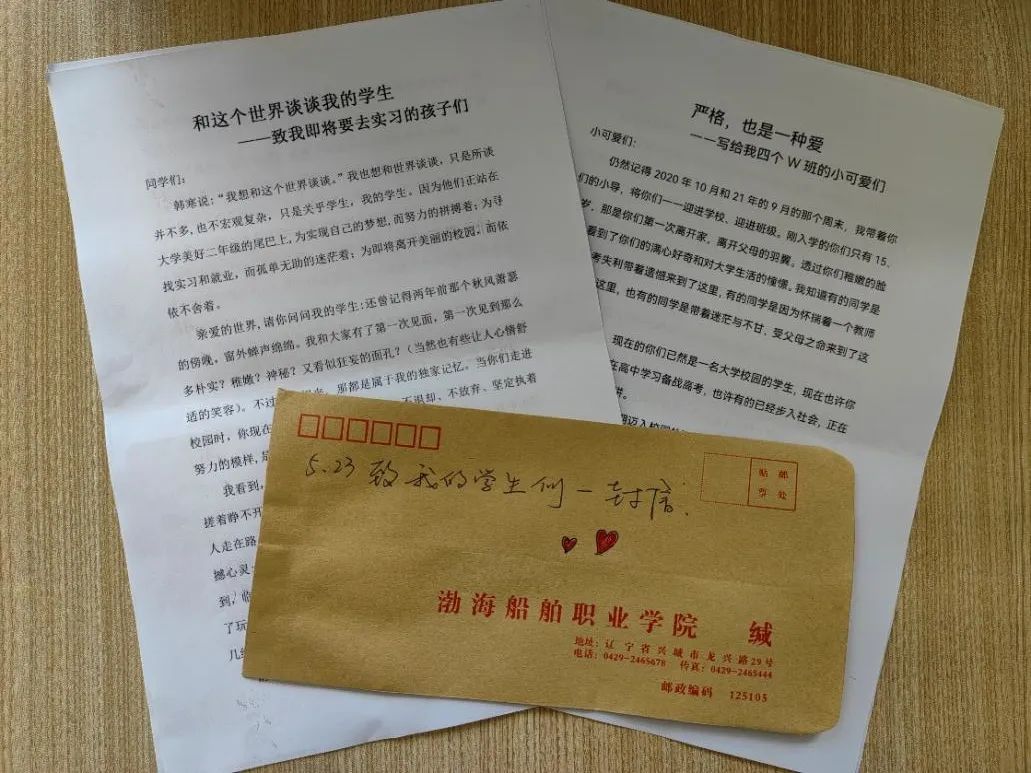 和这个世界谈谈我的学生
——致我即将要去实习的孩子们
同学们：
韩寒说：“我想和这个世界谈谈。”我也想和世界谈谈，只是所谈
并不多，也不宏观复杂，只是关乎学生，我的学生。因为他们正站在
大学美好二年级的尾巴上，为实现自己的梦想，而努力的拼搏着；为寻
找实习和就业，而孤单无助的迷茫着；为即将离开美丽的校园，而依
依不舍着。
亲爱的世界，请你问问我的学生：还曾记得两年前那个秋风萧瑟
的傍晚，窗外蝉声绵绵。我和大家有了第一次见面，第一次见到那么
多朴实？稚嫩？神秘？又看似狂妄的面孔？（当然也有些让人心情舒
适的笑容）。不过 那都是属于我的独家记忆。当你们走进
校园时，你现在 不退却、不放弃、坚定执着
努力的模样，是
我看到，
搓着睁不开
人走在路
撼心灵
到，临
了玩
几
严格，也是一种爱
——写给我四个 W 班的小可爱们
小可爱们：
仍然记得 2020 年 10 月和 21 年的 9 月的那个周末，我带着你
们的小导，将你们一一迎进学校、迎进班级。刚入学的你们只有 15、
岁，那是你们第一次离开家，离开父母的羽翼。透过你们稚嫩的脸
看到了你们的满心好奇和对大学生活的憧憬。我知道有的同学是
考失利带着遗憾来到了这里，有的同学是因为怀揣着一个教师
这里，也有的同学是带着迷茫与不甘，受父母之命来到了这
现在的你们已然是一名大学校园的学生，现在也许你
在高中学习备战高考，也许有的已经步入社会，正在
拼。
迈入校园
5.23 致我的学生们一封信.
贴 邮
票 处
渤海船舶职业学院 缄
地址：辽宁省兴城市龙兴路29号
电话：0429-2465678 传真：0429-2465444
邮政编码 125105